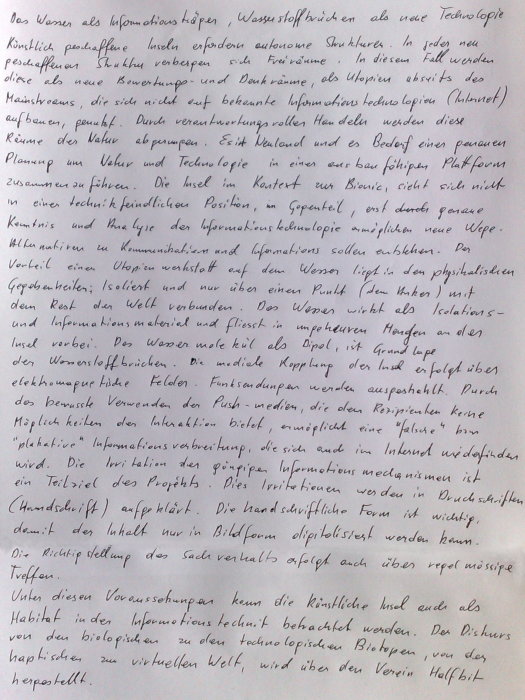 Das Wasser als Informationsträger, Wasserstoffbrücken als neue Technologie
Künstlich geschaffene Inseln erfordern autonome Strukturen. In jeder neu
geschaffenen Struktur verbergen sich Freiräume. In diesem Fall werden
diese als neue Bewertungs- und Denkräume, als Utopien abseits des
Mainstreams, die sich nicht auf bekannte Informationstechnologien (Internet)
aufbauen, genutzt. Durch verantwortungsvolles Handeln werden diese
Räume der Natur abgerungen. Es ist Neuland und es Bedarf einer genauen
Planung um Natur und Technologie in einer ausbaufähigen Plattform
zusammenzuführen. Die Insel im Kontext zur Bionic, sieht sich nicht
in einer technikfeindlichen Position, im Gegenteil, erst durch genaue
Kenntnis und Analyse der Informationstechnologie ermöglichen neue Wege.
Alternativen zu Kommunikation und Informations sollen entstehen. Der
Vorteil einer Utopienwerkstatt auf dem Wasser liegt in den physikalischen
Gegebenheiten; Isoliert und nur über einen Punkt (dem Anker) mit
dem Rest der Welt verbunden. Das Wasser wirkt als Isolations-
und Informationsmaterial und fliesst in ungeheuren Mengen an der
Insel vorbei. Das Wassermolekül als Dipol, ist Grundlage
der Wasserstoffbrücken. Die mediale Kopplung der Insel erfolgt über
elektromagnetische Felder. Funksendungen werden ausgestrahlt. Durch
das bewusste Verwenden der Push-medien, die dem Rezipienten keine
Möglichkeiten der Interaktion bietet, ermöglicht eine "falsche" bzw
"plakative" Informationsverbreitung, die sich auch im Internet wiederfinden
wird. Die Irritation der gängigen Informationsmechanismen ist
ein Teilziel des Projekts. Dies Irritationen werden in Druckschriften
(Handschrift) aufgeklärt. Die handschriftliche Form ist wichtig,
damit der Inhalt nur in Bildform digitalisiert werden kann.
Die Richtigstellung des Sachverhalts erfolgt auch über regelmässige
Treffen.
Unter diesen Voraussetzungen kann die künstliche Insel auch als
Habitat in der Informationstechnik betrachtet werden. Der Diskurs
von den biologischen zu den technologischen Biotopen, von der
haptischen zur virtuellen Welt, wird über den Verein Halfbit
hergestellt.